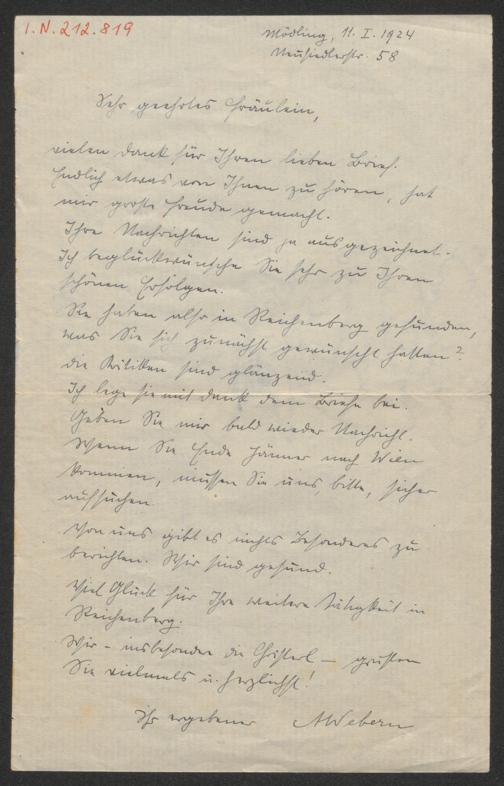 I.N.212.819
Mödling, 11. I. 1924
Neusiedlerstr. 58
Sehr geehrtes Fräulein,
vielen Dank für Ihren lieben Brief.
Endlich etwas von Ihnen zu hören, hat
mir große Freude gemacht.
Ihre Nachrichten sind ja ausgezeichnet.
Ich beglückwünsche Sie sehr zu Ihren
schönen Erfolgen.
Sie haben also in Reichenberg gefunden,
was Sie sich zunächst gewünscht hatten?
Die Kritiken sind glänzend.
Ich lege sie mit Dank dem Briefe bei.
Geben Sie mir bald wieder Nachricht.
Wenn Sie Ende Jänner nach Wien
kommen, müssen Sie uns, bitte, sicher
aufsuchen.
Von uns gibt es nichts Besonderes zu
berichten. Wir sind gesund.
Viel Glück für Ihre weitere Tätigkeit in
Reichenberg.
Wir – insbesondere die Christl – grüßen
Sie vielmals u. herzlichst!
Ihr ergebener AWebern